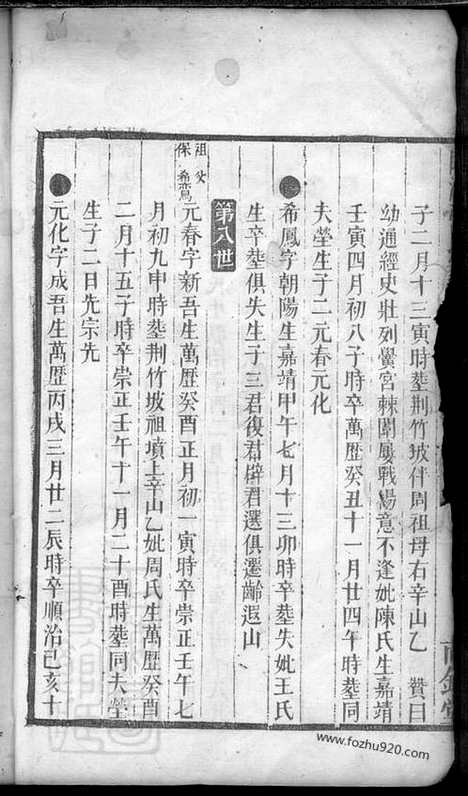 子二月十三寅時塟荆竹坡伴周祖母右辛山乙 贊曰
幼通經史壯列黌宮棘闈屢戰場意不逢妣陳氏生嘉靖
壬寅四月初八子時卒萬歷癸丑十一月廿四午時塟同
夫塋生子二元春元化
希鳳字朝陽生嘉靖甲午七月十三卯時卒塟失妣王氏
生卒塟俱失生子三君復君辟君選俱遷齡遐山
第八世
祖父
希鸞
保
元春字新吾生萬歷癸酉正月初一寅時卒崇正壬午七
月初九申時塟荆竹坡祖墳上辛山乙妣周氏生萬歷癸酉
二月十五子時卒崇正壬午十一月二十酉時塟同夫塋
生子二日先宗先
元化字成吾生萬歷丙戌三月廿二辰時卒順治己亥十
www.fozhu920.com